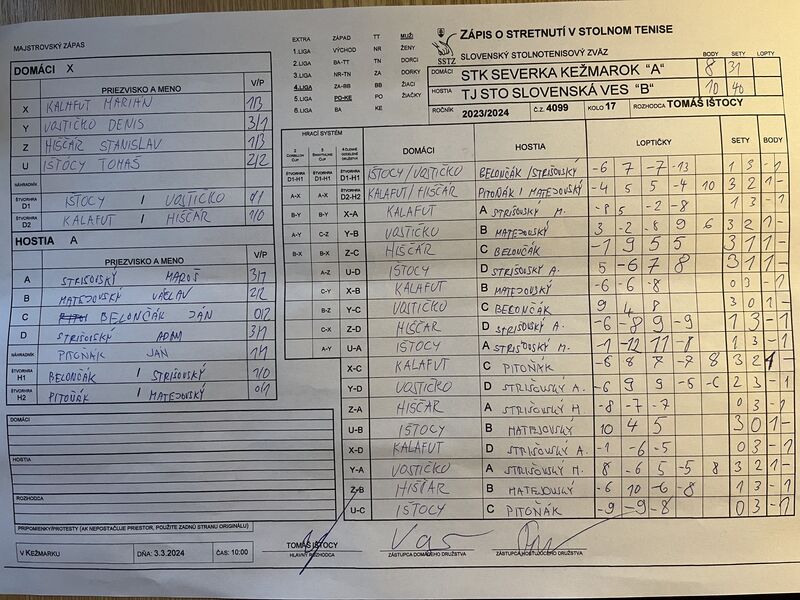 MAJSTROVSKÝ ZÁPAS
EXTRA ZÁPAD TT MUŽI
1.LIGA VÝCHOD NR ŽENY
2.LIGA BA-TT TN DORCI
3.LIGA NR-TN ZA DORKY
4.LIGA ZA-BB BB ŽIACI
5.LIGA PO-KE PO ŽIAČKY
6.LIGA BA KE
SSTZ
ZÁPIS O STRETNUTÍ V STOLNOM TENISE
SLOVENSKÝ STOLNOTENISOVÝ ZVÄZ
BODY SETY LOPTY
DOMÁCI STK SEVERKA KEŽMAROK "A" 8 31
HOSTIA TJ STO SLOVENSKÁ VES "B" 10 40
ROČNÍK 2023/2024 Č.Z. 4099 KOLO 17 ROZHODCA TOMÁŠ IŠTOCY
DOMÁCI X
PRIEZVISKO A MENO V/P
X KALAFUT MARIÁN 1/3
Y VOJTIČKO DENIS 3/1
Z HIŠČÁR STANISLAV 1/3
U IŠTOCY TOMÁŠ 2/2
NÁHRADNÍK
ŠTVORHRA D1 IŠTOCY / VOJTIČKO 0/1
ŠTVORHRA D2 KALAFUT / HIŠČÁR 1/0
HOSTIA A
PRIEZVISKO A MENO V/P
A STRIŠOVSKÝ MAROŠ 3/1
B MATEJOVSKÝ VÁCLAV 2/2
C BELONČÁK JÁN 0/2
D STRIŠOVSKÝ ADAM 3/1
NÁHRADNÍK PITOŇÁK JAN 1/1
ŠTVORHRA H1 BELONČÁK / STRIŠOVSKÝ 1/0
ŠTVORHRA H2 PITOŇÁK / MATEJOVSKÝ 0/1
HRACÍ SYSTÉM DOMÁCI HOSTIA LOPTIČKY SETY BODY
D1-H1 D1-H1 D1-H1 IŠTOCY/VOJTIČKO BELONČÁK/STRIŠOVSKÝ -6 7 -7 -13 1 3 - 1
A-X A-X D2-H2 KALAFUT/HIŠČÁR PITOŇÁK/MATEJOVSKÝ -4 5 5 -4 10 3 2 1 -
B-Y B-Y X-A KALAFUT A STRIŠOVSKÝ M. -8 5 -2 -8 1 3 - 1
A-Y C-Z Y-B VOJTIČKO B MATEJOVSKÝ 3 -2 -8 9 6 3 2 1 -
B-X B-X Z-C HIŠČÁR C BELONČÁK -1 9 5 5 3 1 1 -
A-Z U-D IŠTOCY D STRIŠOVSKÝ A. 5 -6 7 8 3 1 1 -
C-Y X-B KALAFUT B MATEJOVSKÝ -6 -6 -8 0 3 - 1
B-Z Y-C VOJTIČKO C BELONČÁK 9 4 8 3 0 1 -
C-X Z-D HIŠČÁR D STRIŠOVSKÝ A. -6 -8 9 -9 1 3 - 1
A-Y U-A IŠTOCY A STRIŠOVSKÝ M. -1 -12 11 -8 1 3 - 1
X-C KALAFUT C PITOŇÁK -6 8 7 -7 8 3 2 1 -
Y-D VOJTIČKO D STRIŠOVSKÝ A. -6 9 9 -5 -6 2 3 - 1
Z-A HIŠČÁR A STRIŠOVSKÝ M. -8 -7 -7 0 3 - 1
U-B IŠTOCY B MATEJOVSKÝ 10 4 5 3 0 1 -
X-D KALAFUT D STRIŠOVSKÝ A. -1 -6 -5 0 3 - 1
Y-A VOJTIČKO A STRIŠOVSKÝ M. 8 -6 5 -5 8 3 2 1 -
Z-B HIŠČÁR B MATEJOVSKÝ -6 10 -6 -8 1 3 - 1
U-C IŠTOCY C PITOŇÁK -9 -9 -8 0 3 - 1
DOMÁCI
HOSTIA
ROZHODCA
PRIPOMIENKY/PROTESTY (AK NEPOSTAČUJE PRIESTOR, POUŽITE ZADNÚ STRANU ORIGINÁLU)
V KEŽMARKU DŇA: 3.3.2024 ČAS: 10:00
TOMÁŠ IŠTOCY
HLAVNÝ ROZHODCA
ZÁSTUPCA DOMÁCEHO DRUŽSTVA
ZÁSTUPCA HOSŤUJÚCEHO DRUŽSTVA